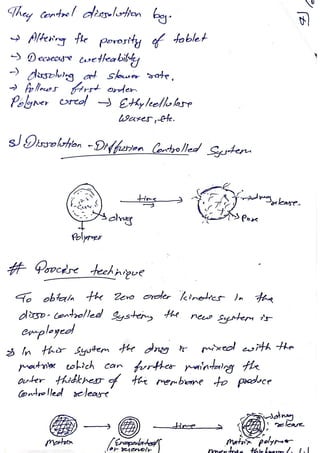 They control dissolution by.
→ Altering the porosity of tablet
→ Decrease wetteability
→ dissolving at slower rate.
→ follows first order
Polymer used → Ethylcellulose
waxes, etc.
s) Dissolution - Diffusion Controlled System
time
drug release.
drug
Pore
Polymer
# Process technique
To obtain the zero order kinetics in the
disso-controlled system, the new system is
employed
In this system the drug is mixed with the
matrix which can further maintaing the
outer thickness of the membrane to produce
controlled release
time
drug
release
Matrix
or reservoir
Matrix polymer